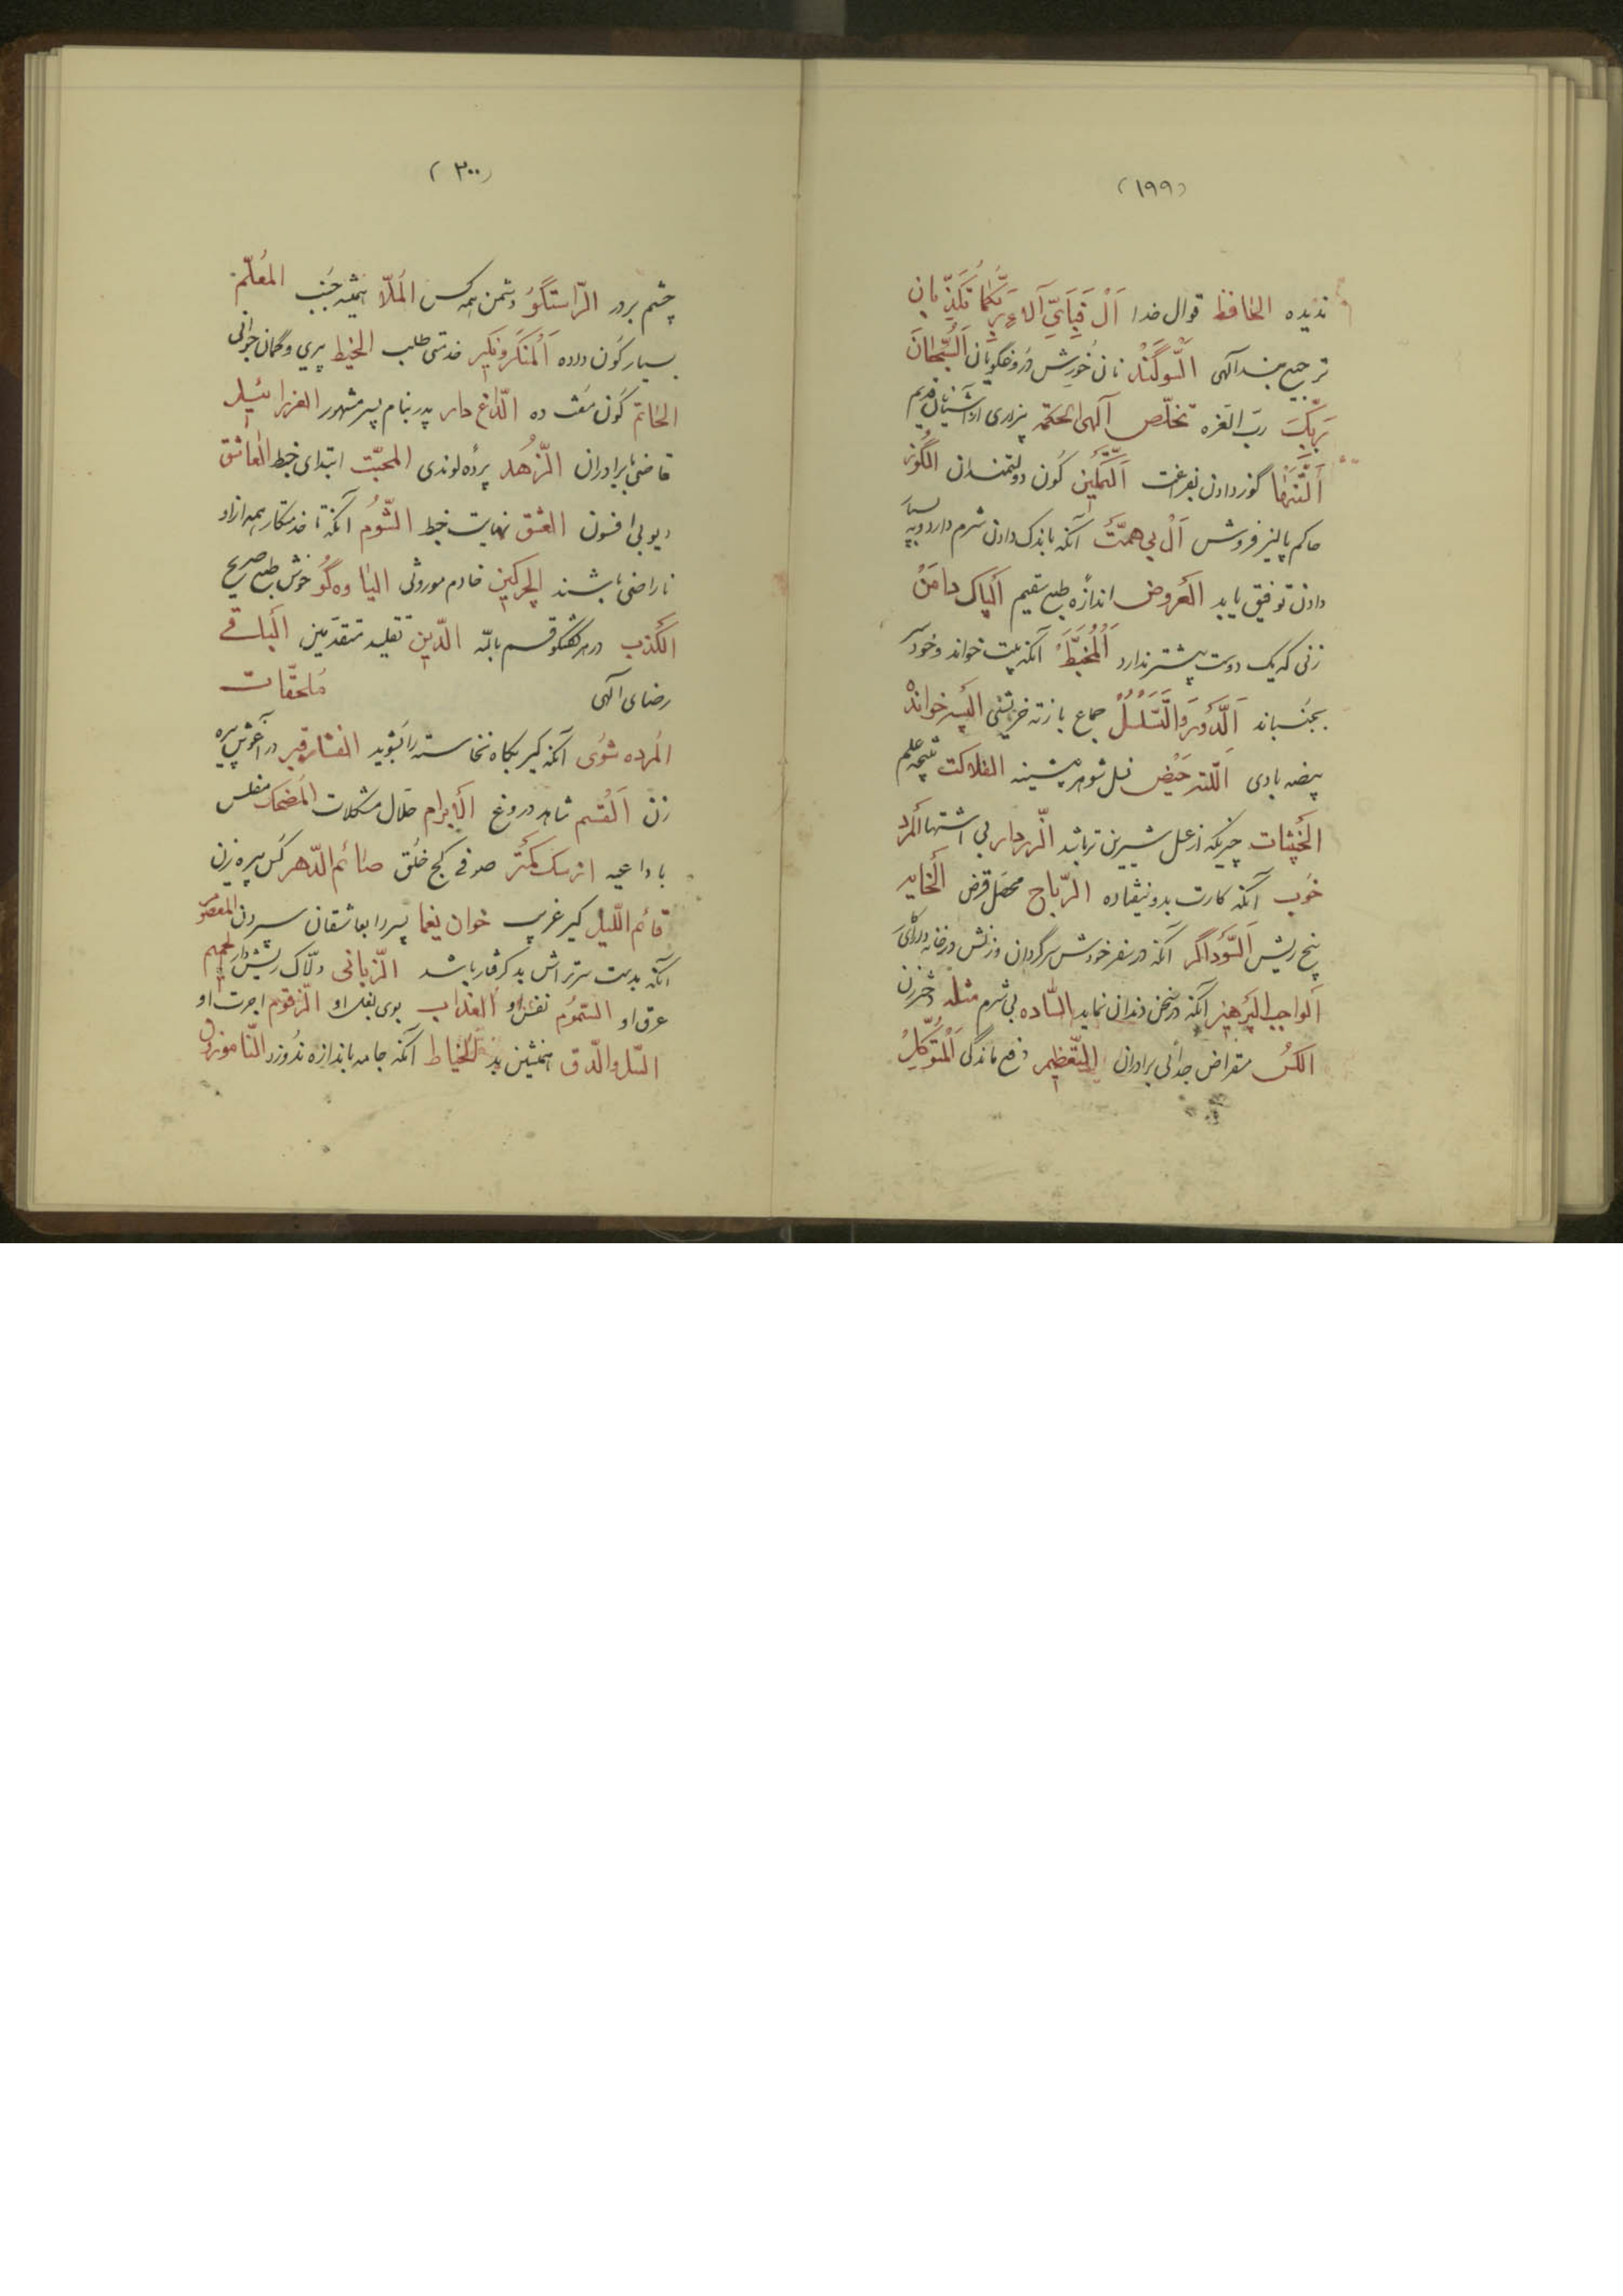 (۱۹۹)
ندیده الحافظ قوال خدا اَلْ فَبِاَیِّ آلاءِ رَبِّکُمَا تُکَذِّبانِ
ترجیع بند آلهی السَّوگَنْد نان خُورِش دروغگویان السُّبْحَانَ
رَبِّکَ رب العزه تخلّص آلهی الحکمّه بیزاری از آشنایان قدیم
اَلتَّنها گوز دادن بفراغت اَلتَّمکین کُون دولتمندان الگُوز
حاکم پالیز فروش اَلْ بی همّتْ آنکه باندک دادن شرم دارد و به بسیار
دادن توفیق یابد العَروض اندازه طبع سقیم اَلپاک دامَنْ
زنی که یک دوست بیشتر ندارد اَلْمُخَبَّطْ آنکه بیت خواند و خود سر
بجنباند اَلدَّوْرُ وَالتَّسَلْسُلْ جماع با زن اَلپسر خوانده
بیضه بادی اَللته حَیْض نسل شوهر پیشینه الفلاکت نتیجه علم
الخُنْثیات چیزیکه از عسل شیرین تر باشد الزّردار بی اشتها المَرد
خوب آنکه کارت بدو نیفتاده الرّباح محصل قرض الخایه
بیخ ریش اَلسَّوداگر آنکه در سفر خودش سرگردان و زنش در خانه
اَلواجب الپرهیز آنکه در سخن دندان نماید السّاده بی شرم مثله دختر زن
الکُس مقراض جدائی برادران التّعظیم دفع ماندگی اَلْمُتَوَکِّلْ
(۲۰۰)
چشم بردر الرّاستگوُ دشمن همه کس المُلّا همیشه جُنُب المُعلّم
بسیار کُون داده اَلمُنکَر و نکیر خدمتی طلب الخیط پیری و گمان جوانی
الخاتم کُون مفت ده الدّاغ دار پدر بنام پسر مشهور العزرائیل
قاضی برادران الزّهد پرده لوندی المحبّت ابتدای خبط العاشق
دیو بی افسون العشق نهایت خبط الشُّوم آنکه تا خدمتکار همه از او
ناراضی باشند الچرکین خادم موروثی الیاوه گُو خوش طبع صریح
الکذب در هر گفتگو قسم بالله الدّین تقلید متقدّمین اَلباقی
رضای آلهی مُلحقّات
المُرده شوی آنکه کیر بگاه نخاسته را بشوید الفشار قبر در آغوش پیره
زن اَلقسم شاهد دروغ اَلابرام حلّال مشکلات المُضحک مفلس
با داعیه از سگ کمتر صوفی کج خلق صائم الدّهر کُس پیره زن
قائم اللّیل کیر غریب خوان یغما پسر را بعاشقان سپردن المعصوم
آنکه بدست سرتراش بد گرفتار باشد الزّبانی دلّاک ریش دار الحمیم
عرق او السّموم نفس او العذاب بوی بغل او الزّقوم اجرت او
السّل والدّق همنشین بد الخیاط آنکه جامه باندازه ندوزد النّاموزون